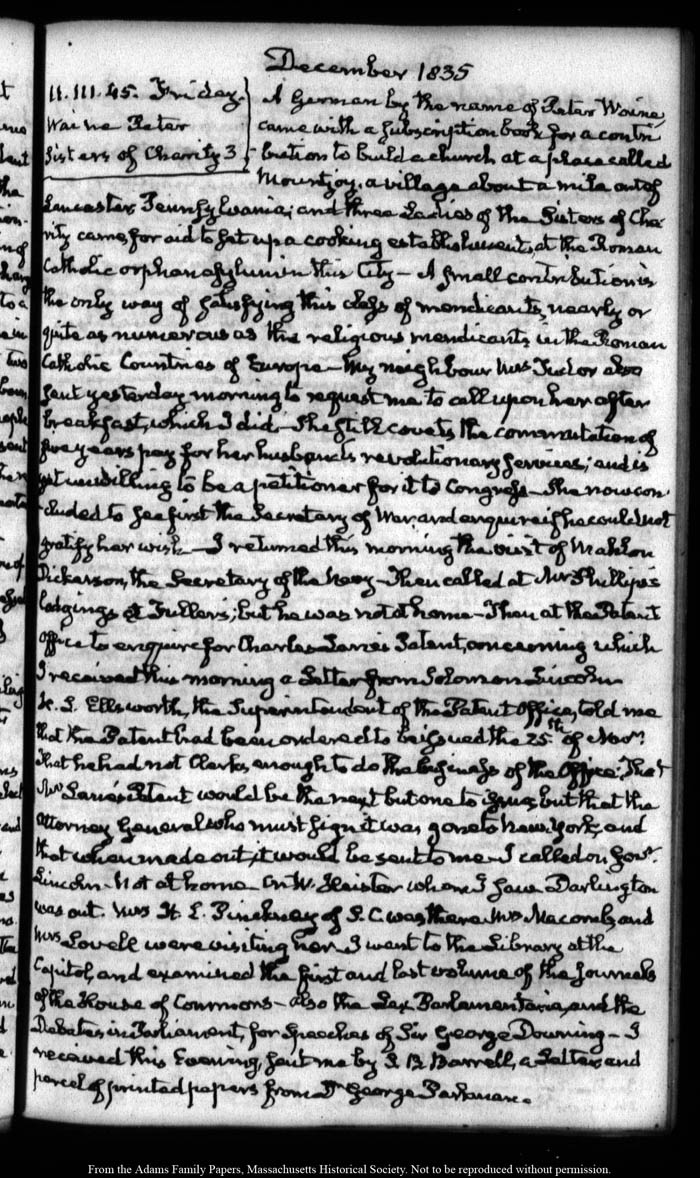 December 1835
11. III. 45. Friday.
Waine Peter
Sisters of Charity 3
A German by the name of Peter Waine
came with a subscription book for a contri
bution to build a church at a place called
Mountjoy, a village about a mile out of
Lancaster Pennsylvania; and three Ladies of the Sisters of Cha
rity came for aid to set up a cooking establishment, at the Roman
Catholic orphan asylum in this City — A small contribution is
the only way of satisfying this class of mendicants, nearly or
quite as numerous as the religious mendicants in the Roman
Catholic Countries of Europe — My neighbour Mrs Tudor also
sent yesterday morning to request me to call upon her after
breakfast, which I did. She still covets the commutation of
five years pay for her husband's revolutionary services; and is
yet unwilling to be a petitioner for it to Congress — She now con
cluded to see first the Secretary of War and enquire if he could not
gratify her wish — I returned this morning the visit of Mahlon
Dickerson, the Secretary of the Navy — Then called at Mr Phillips's
lodgings at Fuller's; but he was not at home — Then at the Patent
Office to enquire for Charles Lane's Patent, concerning which
I received this morning a Letter from Solomon Lincoln
H. L. Ellsworth, the Superintendent of the Patent Office, told me
that the Patent had been ordered to be issued the 25th of Novr.
that he had not Clerks enough to do the business of the Office. That
Mr Lane's Patent would be the next but one to issue, but that the
Attorney General who must sign it was gone to New York, and
that when made out, it would be sent to me — I called on Govr.
Lincoln — Not at home. On W. Heister whom I saw Darlington
was out. Mrs H. L. Pinckney of S. C. was there Mrs Macomb, and
Mrs Lovell were visiting her. I went to the Library at the
Capitol, and examined the first and last volume of the Journals
of the House of Commons — also the Lex Parlamentaria, and the
Debates in Parliament, for speeches of Sir George Downing — I
received this Evening, sent me by S. B. Barrell, a Letter and
parcel of printed papers from Dr George Parkman.
From the Adams Family Papers, Massachusetts Historical Society. Not to be reproduced without permission.